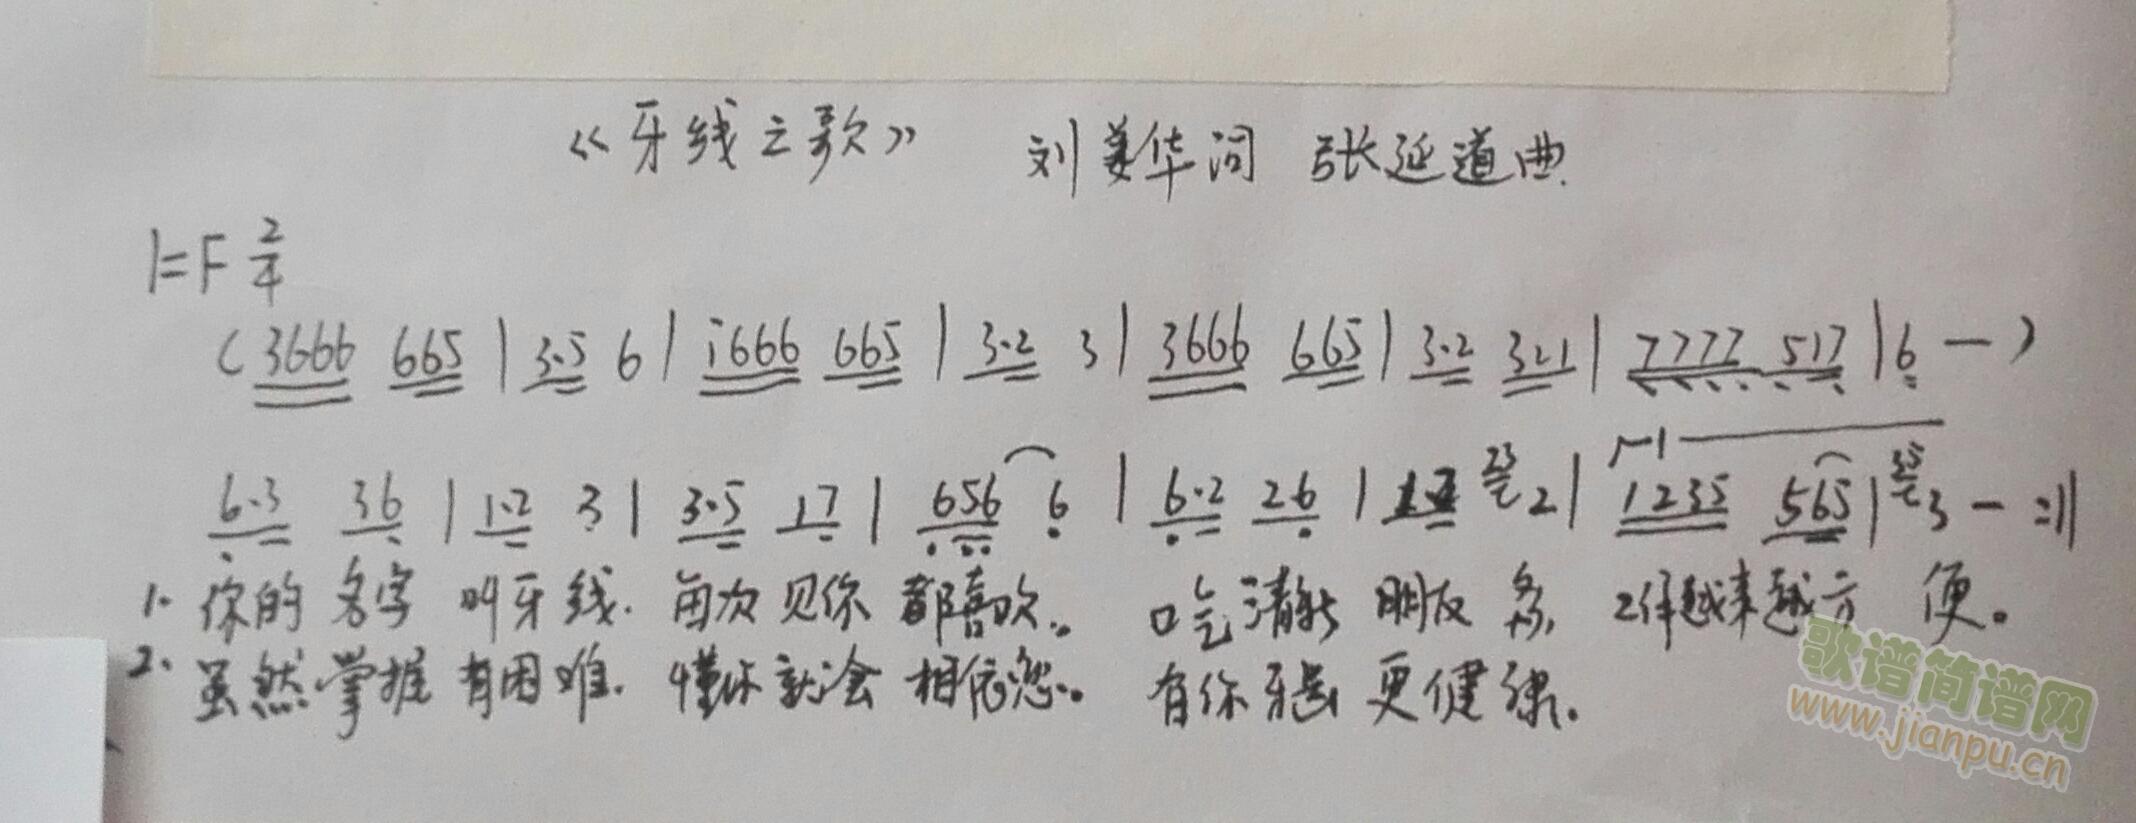 《牙线之歌》 刘姜华词 张延道曲
1=F 2/4
( 3666 665 | 3·5 6 | i666 665 | 3·2 3 | 3666 665 | 3·2 321 | 7777 517 | 6 — )
6·3 36 | 1·2 3 | 3·5 17 | 656 6 | 6·2 26 | 12 23 2 | 1235 565 | 35 3 — :||
1. 你的名字 叫牙线. 每次见你 都喜欢. 吃 朋友多, 越来越方便。
2. 虽然掌握 有困难. 懂你就会 相依恋. 有你牙齿 更健康.
歌谱简谱网
www.jianpu.cn